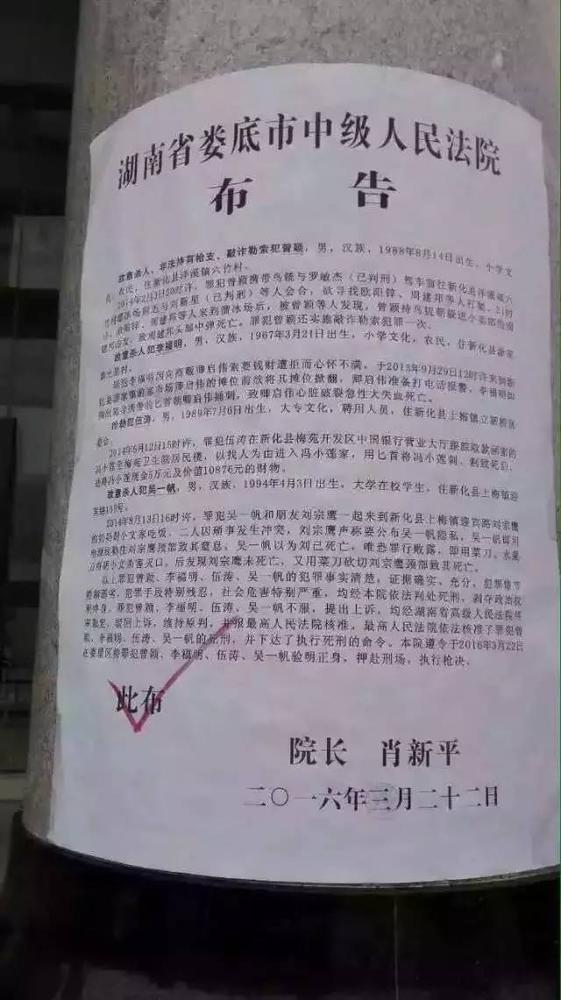 湖南省娄底市中级人民法院
布 告
故意杀人、非法持有枪支、敲诈勒索犯曾颖，男，汉族，1988年8月14日出生，小学文
农民，住新化县洋溪镇六竹村。
2014年2月3日20时许，罪犯曾颖携带鸟铳与罗敏杰（已判刑）
刘新星（已判刑）等人会合，欲寻找欧阳锋、周建邦等人
等人来到溜冰场后，被曾颖等人发现，曾颖持鸟铳朝
致周建邦头部中弹死亡。罪犯曾颖还实施敲诈勒索犯罪一次。
故意杀人犯李福明，男，汉族，1967年3月21日出生，小学文化，农民，住新化县
索要钱财遭拒而心怀不满，于2013年9月29日12时许来到
的摊位前欲将其摊位掀翻，卿启伟准备打电话报警，李福明
匕首朝卿启伟捅刺，致卿启伟心脏破裂急性大失血死亡。
抢劫犯伍涛，男，1989年7月6日出生，大专文化，聘用人员，住新化县上梅镇立新
2014年5月12日15时许，罪犯伍涛在新化县梅苑开发区中国银行营业大厅跟踪取款
梅苑卫生院居民楼，以找人为由进入冯小莲家，用匕首将冯小莲刺、割致死后，
现金5万元及价值10876元的财物。
故意杀人犯吴一帆，男，汉族，1994年4月3日出生，大学在校学生，住新化县上梅镇
2014年8月13日16时许，罪犯吴一帆和朋友刘宗鹰一起来到新化县上梅镇
家吃饭，二人因琐事发生冲突，刘宗鹰声称要公布吴一帆隐私，吴一帆
勒住刘宗鹰颈部致其窒息，吴一帆以为刘已死亡，唯恐罪行败露，即用菜刀、水果
杀害灭口，后发现刘宗鹰未死亡，又用菜刀砍切刘宗鹰颈部致其死亡。
以上罪犯曾颖、李福明、伍涛、吴一帆的犯罪事实清楚，证据确实、充分，犯罪情节
犯罪手段特别残忍，社会危害特别严重，均经本院依法判处死刑，剥夺政治权
利终身。罪犯曾颖、李福明、伍涛、吴一帆不服，提出上诉，均经湖南省高级人民法院
驳回上诉，维持原判，并报最高人民法院核准。最高人民法院依法核准了罪犯曾
颖、李福明、伍涛、吴一帆的死刑，并下达了执行死刑的命令。本院遵令于2016年3月22日
在娄星区将罪犯曾颖、李福明、伍涛、吴一帆验明正身，押赴刑场，执行枪决。
此布
院长 肖新平
二〇一六年三月二十二日